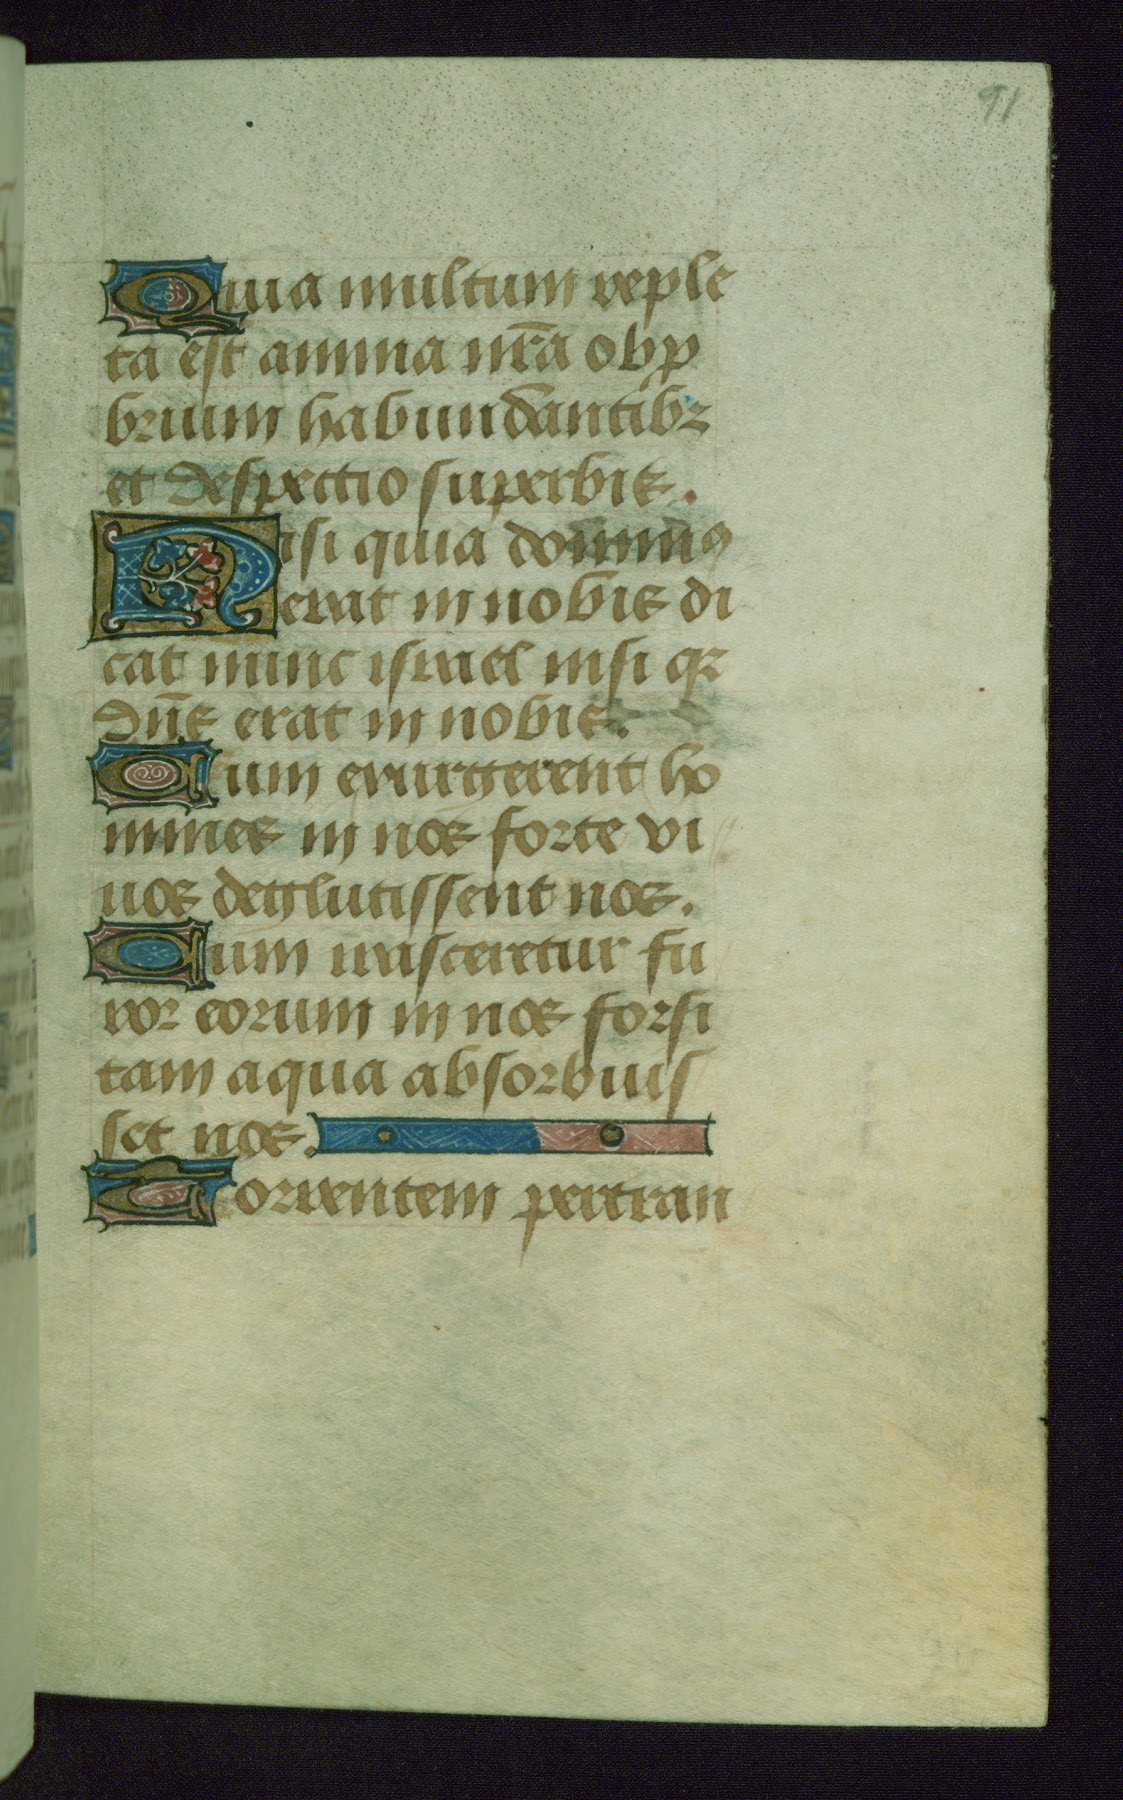 91
Quia multum reple
ta est anima nr̃a obp
brium habundantibꝫ
et despectio superbis.
Nisi quia dominus
erat in nobis di
cat nunc israel nisi qr
Dñs erat in nobis.
Cum exurgerent ho
mines in nos forte vi
uos deglutissent nos.
Cum irasceretur fu
ror eorum in nos forsi
tam aqua absorbuis
set nos.
Torrentem pertran